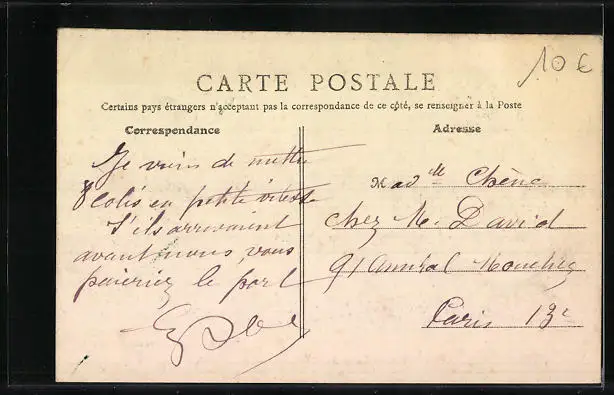 10 €
CARTE POSTALE
Certains pays étrangers n'acceptant pas la correspondance de ce côté, se renseigner à la Poste
Correspondance
Adresse
Je viens de mettre
8 colis en petite vitesse
S'ils arrivaient
avant nous vous
paieriez le port
Madelle Chêne
chez M. David
91 Amiral Mouchez
Paris 13e